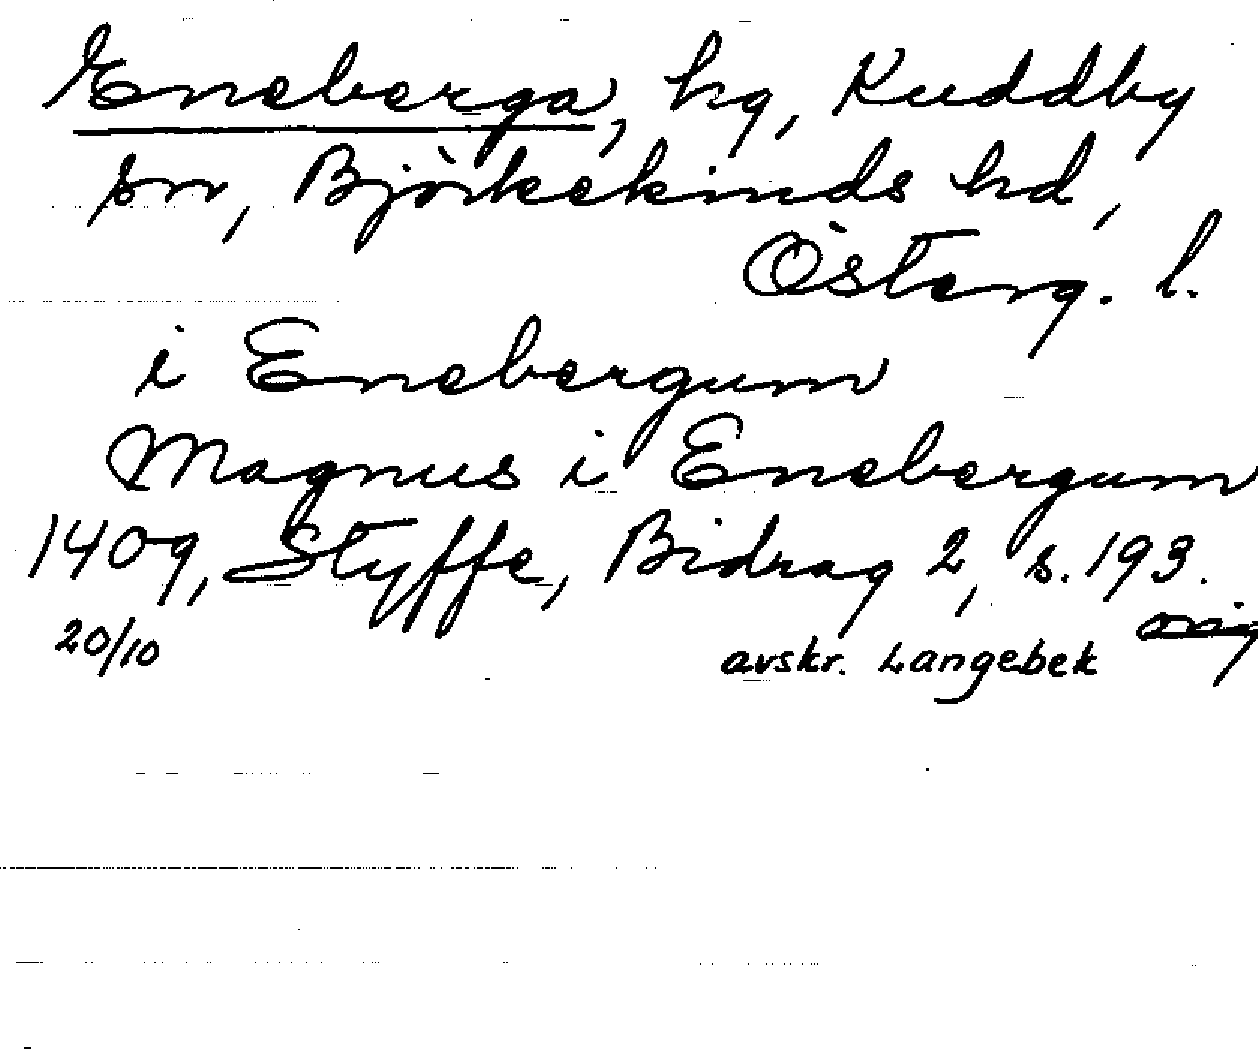 Eneberga, hg, Kuddby
sn, Björkekinds hd,
Österg. l.
i Enebergum
Magnus i Enebergum
1409, Styffe, Bidrag 2, s. 193.
20/10 avskr. Langebek orig